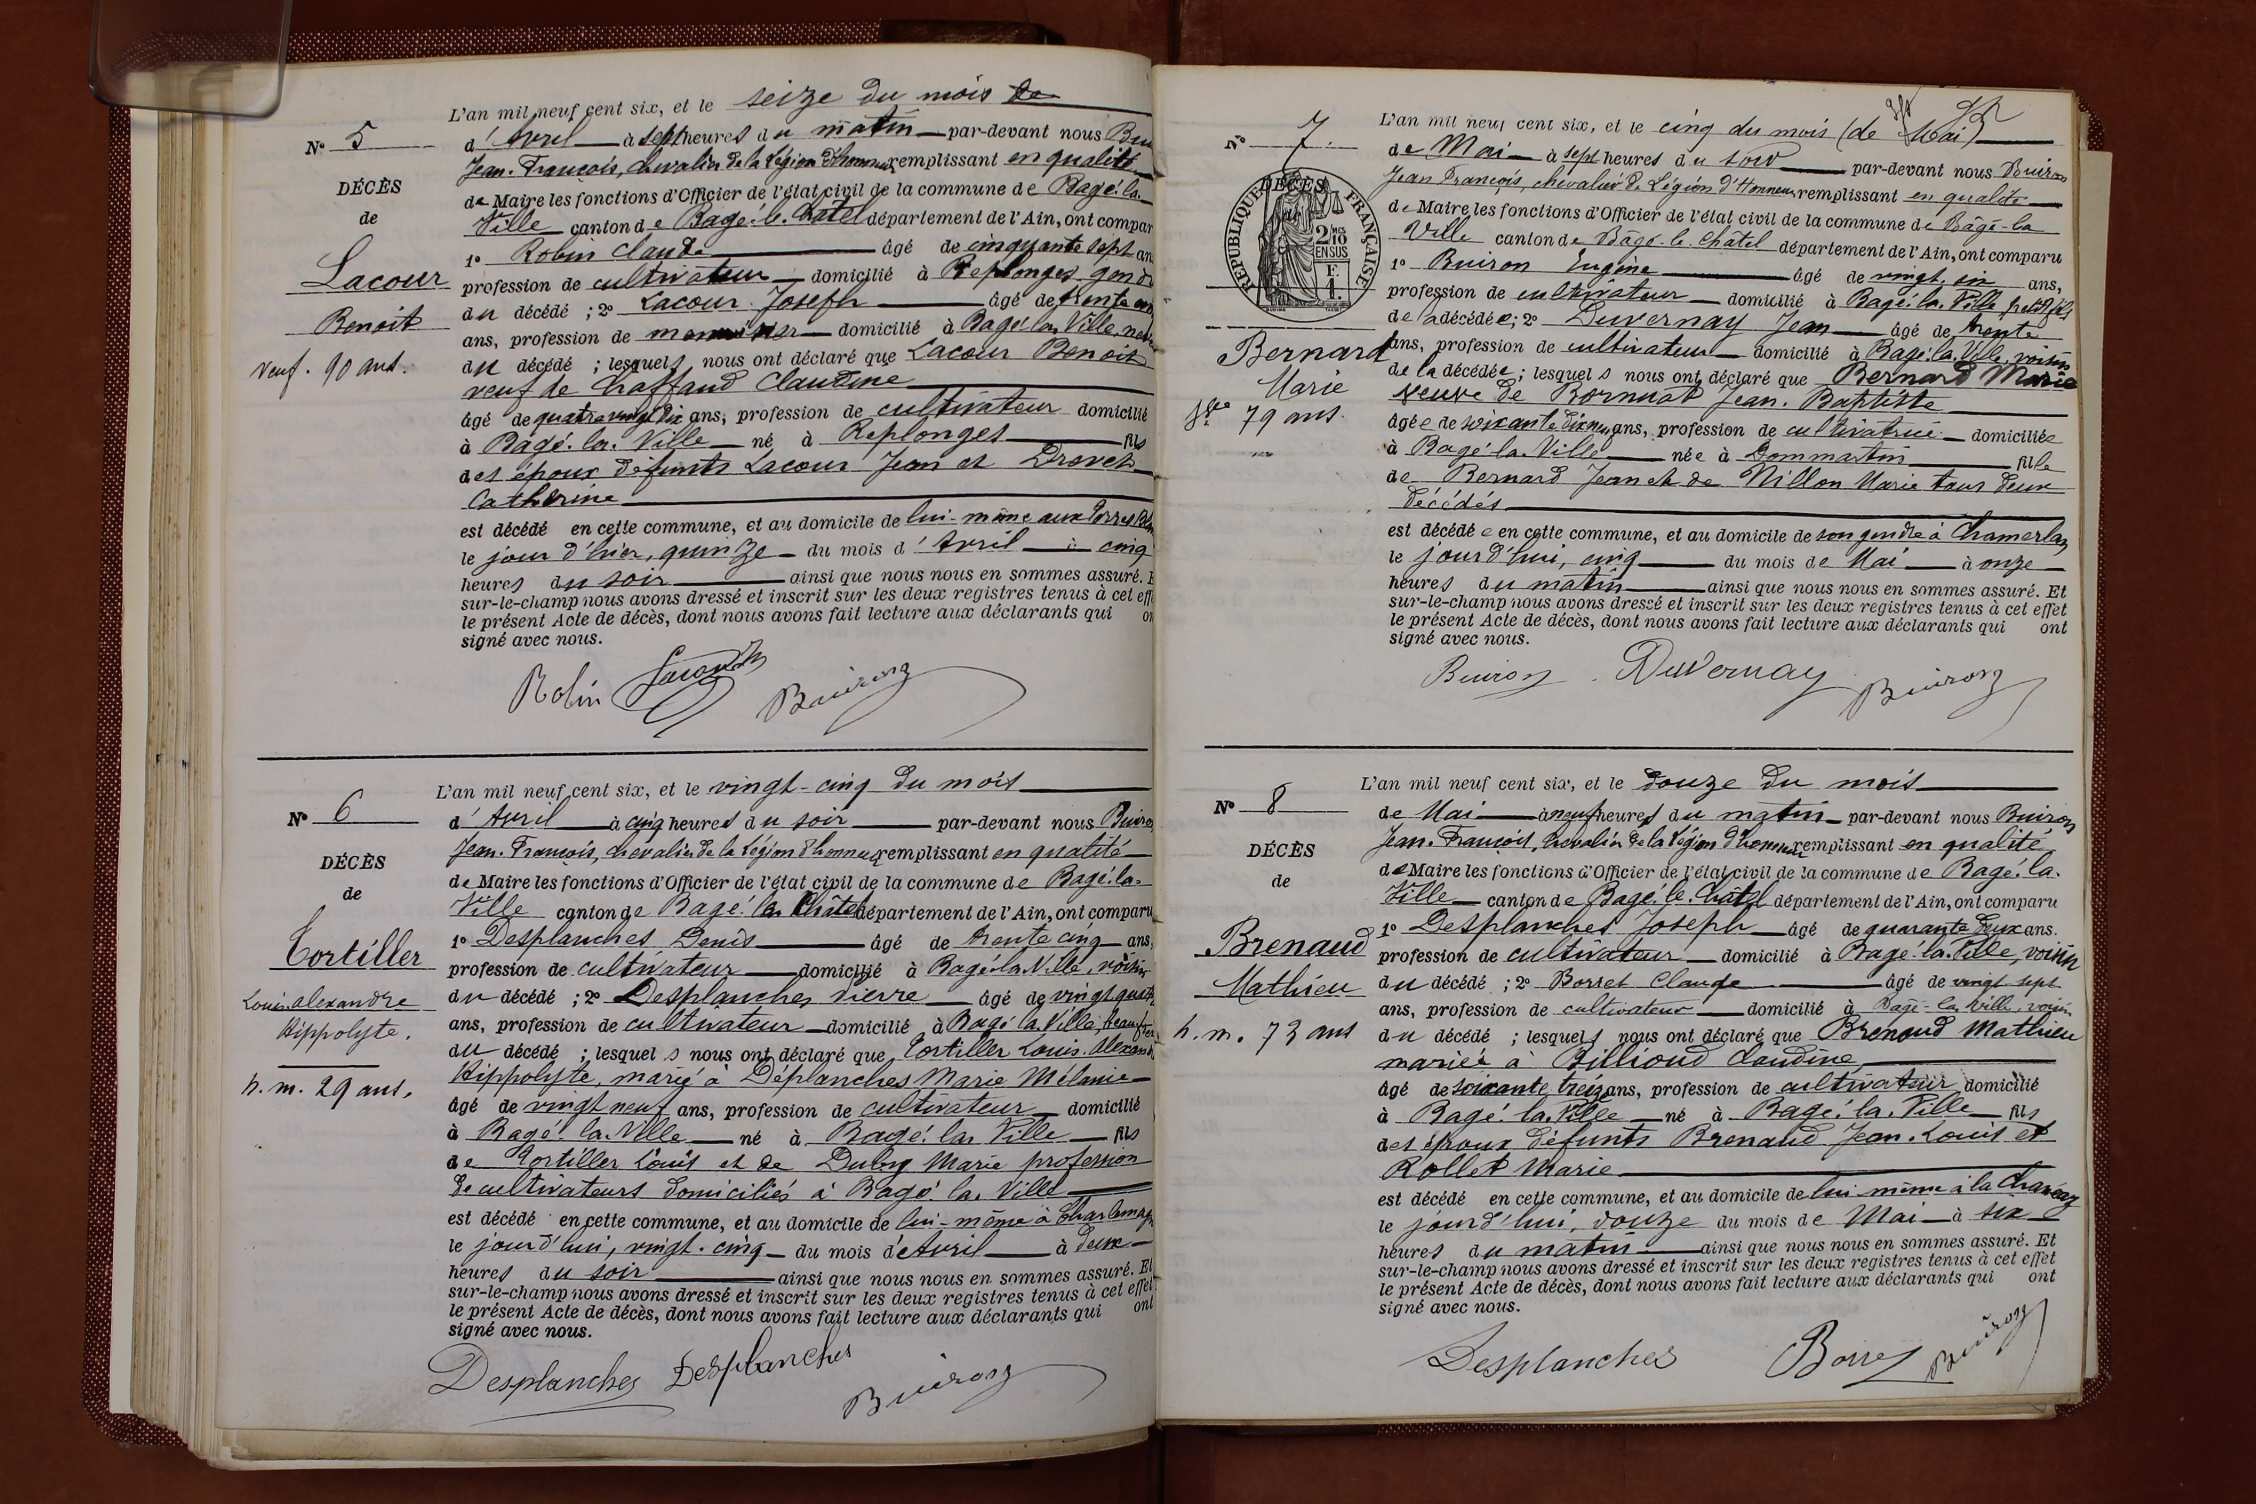 L'an mil neuf cent six, et le seize du mois de
N° 5
d'Avril à sept heures du matin par-devant nous
Jean-François, chevalier de la Légion d'honneur remplissant en qualité
DÉCÈS
de Maire les fonctions d'Officier de l'état civil de la commune de Bagé-la-
de
Ville canton de Bagé-le-Châtel département de l'Ain, ont compar
1° Robin Claude âgé de cinquante sept an
Lacour
profession de cultivateur domicilié à Replonges, gendre
du décédé ; 2° Lacour Joseph âgé de trente
Benoit
ans, profession de domicilié à Bagé-la-Ville, neveu
Veuf. 90 ans.
du décédé ; lesquels nous ont déclaré que Lacour Benoit
veuf de Chaffaud Claudine
âgé de quatre vingt dix ans, profession de cultivateur domicilié
à Bagé-la-Ville né à Replonges fils
des époux défunts Lacour Jean et
Catherine
est décédé en cette commune, et au domicile de lui-même aux
le jour d'hier, quinze du mois d'Avril à cinq
heures du soir ainsi que nous nous en sommes assuré. E
sur-le-champ nous avons dressé et inscrit sur les deux registres tenus à cet effe
le présent Acte de décès, dont nous avons fait lecture aux déclarants qui on
signé avec nous.
Robin Lacour Buiron
L'an mil neuf cent six, et le vingt-cinq du mois
N° 6
d'Avril à cinq heures du soir par-devant nous Buiron
Jean-François, chevalier de la Légion d'honneur remplissant en qualité
DÉCÈS
de Maire les fonctions d'Officier de l'état civil de la commune de Bagé-la-
de
Ville canton de Bagé le Châtel département de l'Ain, ont comparu
Tortiller
1° Desplanches Denis âgé de trente cinq ans,
profession de cultivateur domicilié à Bagé-la-Ville, voisin
Louis Alexandre
du décédé ; 2° Desplanches Pierre âgé de vingt quatre
Hippolyte.
ans, profession de cultivateur domicilié à Bagé la Ville, beau frère
du décédé ; lesquels nous ont déclaré que Tortiller Louis Alexandre
h. m. 29 ans.
Hippolyte, marié à Déplanches Marie Mélanie
âgé de vingt neuf ans, profession de cultivateur domicilié
à Bagé-la-Ville né à Bagé-la-Ville fils
de Tortiller Louis et de Duby Marie profession
de cultivateurs domiciliés à Bagé la Ville
est décédé en cette commune, et au domicile de lui-même à Charlemagne
le jour d'hui, vingt-cinq du mois d'Avril à deux
heures du soir ainsi que nous nous en sommes assuré. Et
sur-le-champ nous avons dressé et inscrit sur les deux registres tenus à cet effet
le présent Acte de décès, dont nous avons fait lecture aux déclarants qui ont
signé avec nous.
Desplanches Desplanches Buiron
L'an mil neuf cent six, et le cinq du mois (de Mai)
N° 7.
de Mai à sept heures du soir par-devant nous Buiron
Jean François, chevalier de Légion d'Honneur remplissant en qualité
DÉCÈS
RÉPUBLIQUE FRANÇAISE
2/10 EN SUS
F. 1.
de Maire les fonctions d'Officier de l'état civil de la commune de Bâgé-la
Ville canton de Bâgé-le-Châtel département de l'Ain, ont comparu
1° Buiron Eugène âgé de vingt six ans,
profession de cultivateur domicilié à Bagé-la-Ville petit fils
de la décédée ; 2° Duvernay Jean âgé de trente
Bernard
ans, profession de cultivateur domicilié à Bagé-la-Ville, voisin
Marie
de la décédée ; lesquels nous ont déclaré que Bernard Marie
veuve de Bornuat Jean-Baptiste
79 ans.
âgée de soixante dix neuf ans, profession de cultivatrice domiciliée
à Bagé la Ville née à Dommartin fille
de Bernard Jean et de Nillon Marie tous deux
décédés
est décédée en cette commune, et au domicile de son gendre à Chamerlan
le jour d'hui, cinq du mois de Mai à onze
heures du matin ainsi que nous nous en sommes assuré. Et
sur-le-champ nous avons dressé et inscrit sur les deux registres tenus à cet effet
le présent Acte de décès, dont nous avons fait lecture aux déclarants qui ont
signé avec nous.
Buiron Duvernay Buiron
L'an mil neuf cent six, et le douze du mois
N° 8
de Mai à neuf heures du matin par-devant nous Buiron
Jean-François, chevalier de la Légion d'honneur remplissant en qualité
DÉCÈS
de Maire les fonctions d'Officier de l'état civil de la commune de Bagé-la-
de
Ville canton de Bagé-le-Châtel département de l'Ain, ont comparu
1° Desplanches Joseph âgé de quarante deux ans.
Brenaud
profession de cultivateur domicilié à Bagé-la-Ville, voisin
Mathieu
du décédé ; 2° Borret Claude âgé de vingt sept
ans, profession de cultivateur domicilié à Bagé-la Ville, voisin
h. m. 73 ans
du décédé ; lesquels nous ont déclaré que Brenaud Mathieu
marié à Billioud Claudine
âgé de soixante treize ans, profession de cultivateur domicilié
à Bagé-la-Ville né à Bagé-la-Ville fils
des époux défunts Brenaud Jean-Louis et
Rollet Marie
est décédé en cette commune, et au domicile de lui-même à la
le jour d'hui, douze du mois de Mai à six
heures du matin ainsi que nous nous en sommes assuré. Et
sur-le-champ nous avons dressé et inscrit sur les deux registres tenus à cet effet
le présent Acte de décès, dont nous avons fait lecture aux déclarants qui ont
signé avec nous.
Desplanches Borret Buiron